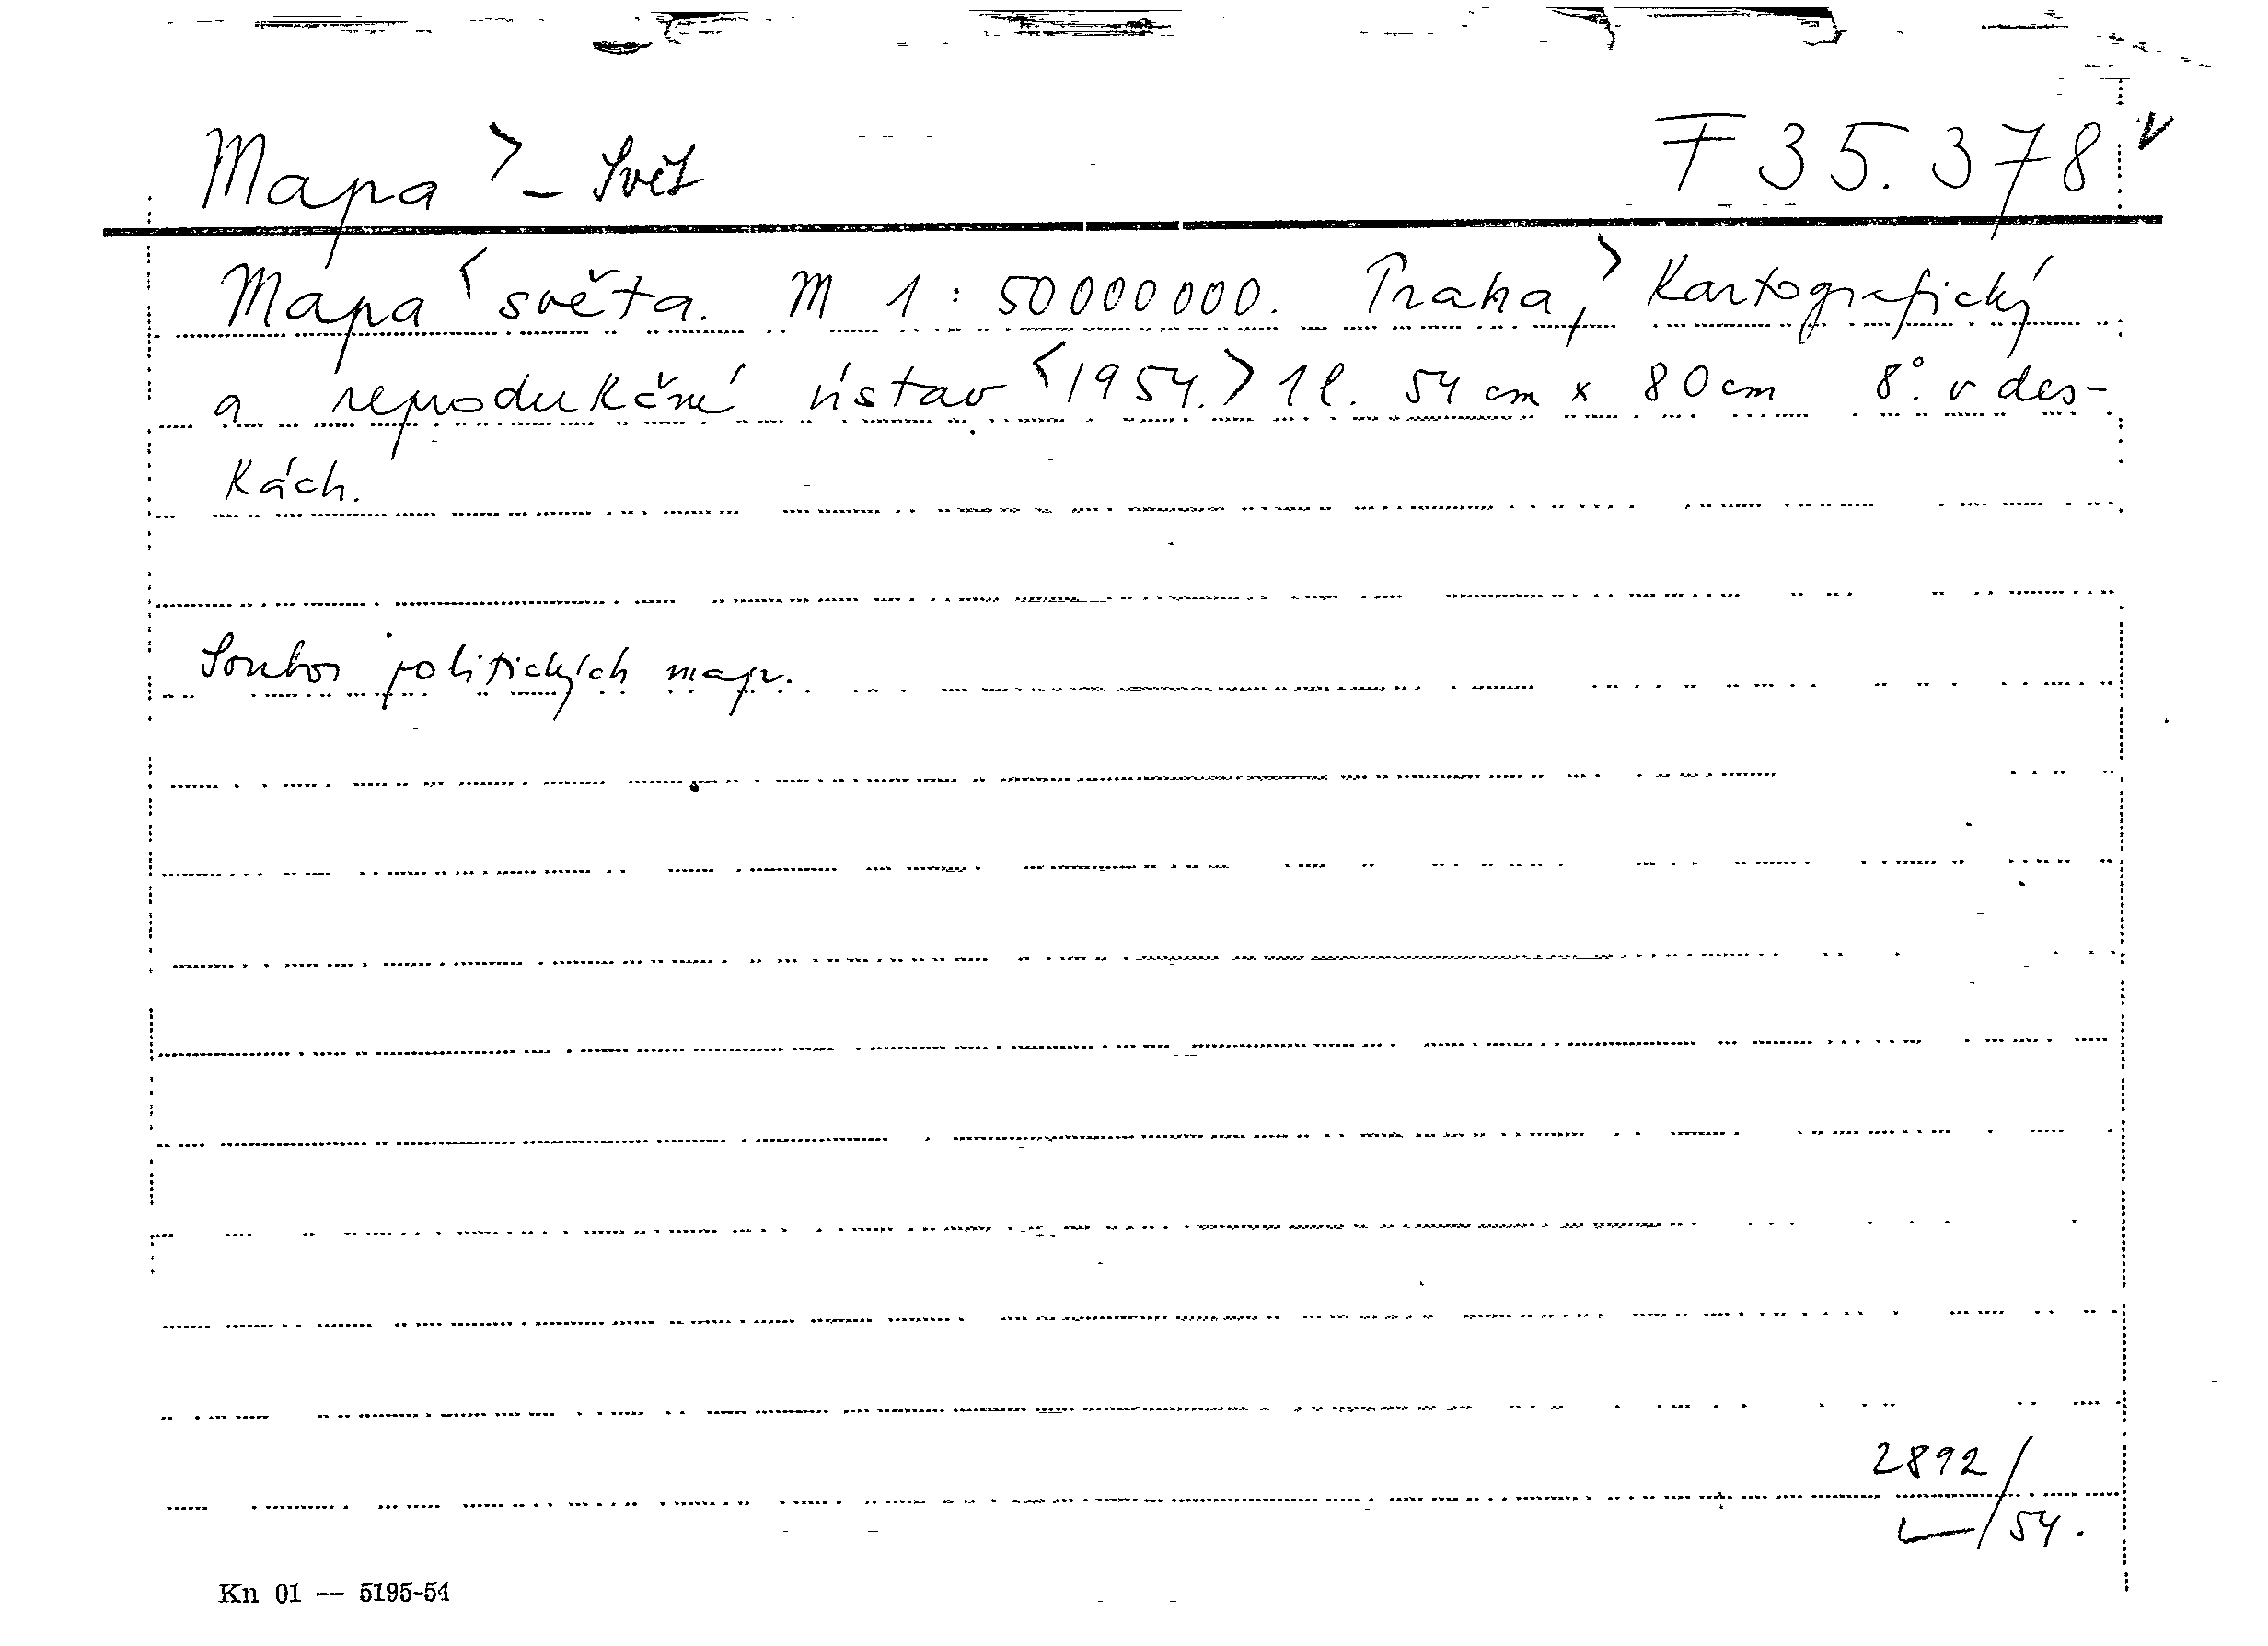 Mapa > - Svět F 35.378 v
Mapa < světa. M 1 : 50000000. Praha, > Kartografický
a reprodukční ústav <1954.> 1 l. 54 cm x 80 cm 8°. v des-
kách.
Soubor politických map.
2892/
54.
Kn 01 -- 5195-54